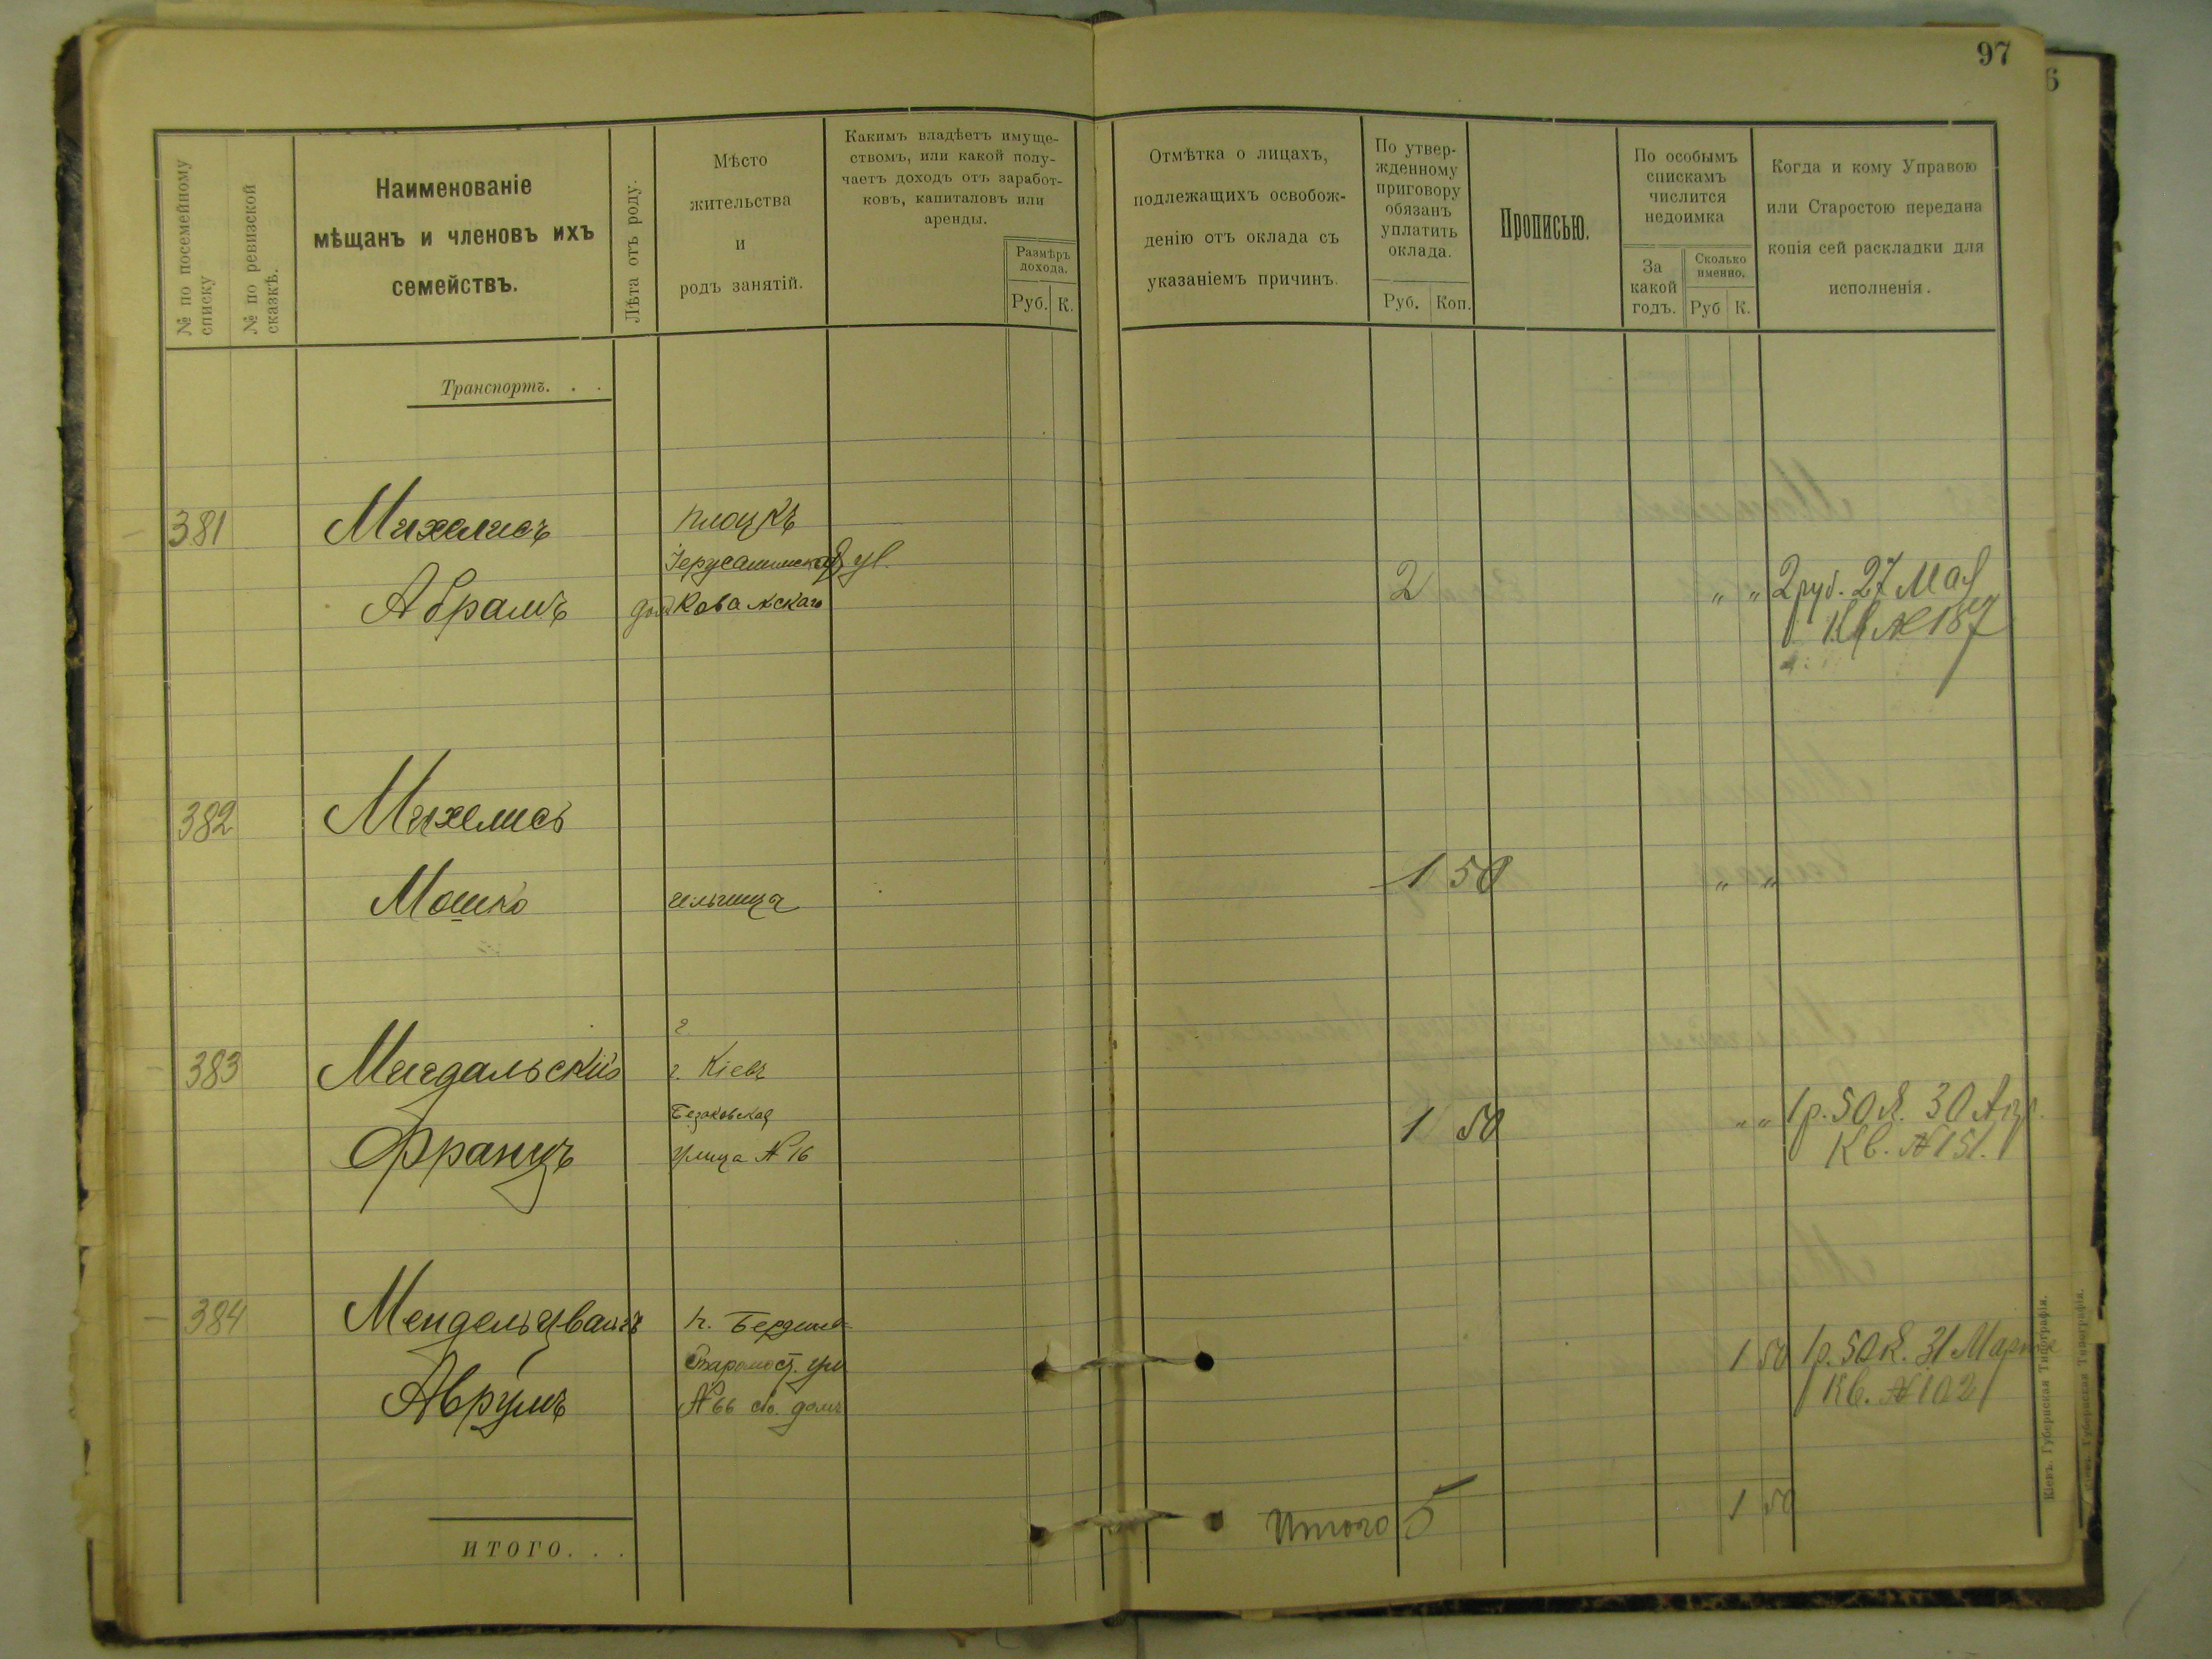 97
6
№ по посемейному списку
№ по ревизской сказкѣ.
Наименованіе
мѣщанъ и членовъ ихъ
семействъ.
Лѣта отъ роду.
Мѣсто
жительства
и
родъ занятій.
Какимъ владѣетъ имуще-
ствомъ, или какой полу-
чаетъ доходъ отъ заработ-
ковъ, капиталовъ или
аренды.
Размѣръ
дохода.
Руб. К.
Отмѣтка о лицахъ,
подлежащихъ освобож-
денію отъ оклада съ
указаніемъ причинъ.
По утвер-
жденному
приговору
обязанъ
уплатить
оклада.
Руб. Коп.
Прописью.
По особымъ
спискамъ
числится
недоимка
За
какой
годъ.
Сколько
именно.
Руб К.
Когда и кому Управою
или Старостою передана
копія сей раскладки для
исполненія.
Транспортъ. . .
381 Михелисъ Плоцкъ
Іерусалимская ул.
Абрамъ дом Ковалскаго 2 " " 2 руб. 27 Мая
Кв № 187
382 Михелисъ
Мошко 1 50 " "
г
383 Мигдальскій г. Кіевъ
Безаковская
Францъ улица № 16 1 50 " " 1 р. 50 к. 30 Апр.
Кв. № 151.
384 Мендельцвайгъ
ул 1 50 1 р. 50 к. 31 Марта
Аврумъ № 66 домъ Кв. № 102
Итого 5 1 50
ИТОГО. . .
Кіевъ. Губернская Типографія.
Губернская Типографія.